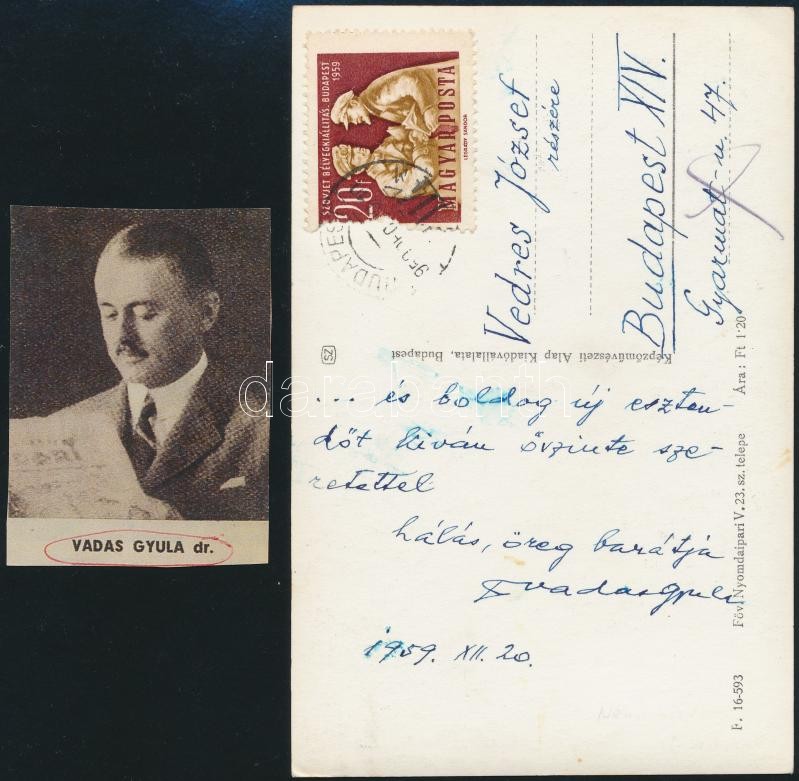 VADAS GYULA dr.
SZOVJET BÉLYEGKIÁLLÍTÁS. BUDAPEST
1959
20f
MAGYAR POSTA
LÉGRÁDY SÁNDOR
BUDAPES
Vedres József
részére
Budapest XIV.
Gyarmat-u. 47.
Képzőművészeti Alap Kiadóvállalata, Budapest
SZ
... és boldog új eszten-
dőt kíván őszinte sze-
retettel
hálás, öreg barátja
Vadas Gyula
1959. XII. 20.
F. 16-593 Föv. Nyomdaipari V. 23. sz. telepe Ára: Ft 1·20
darabanth